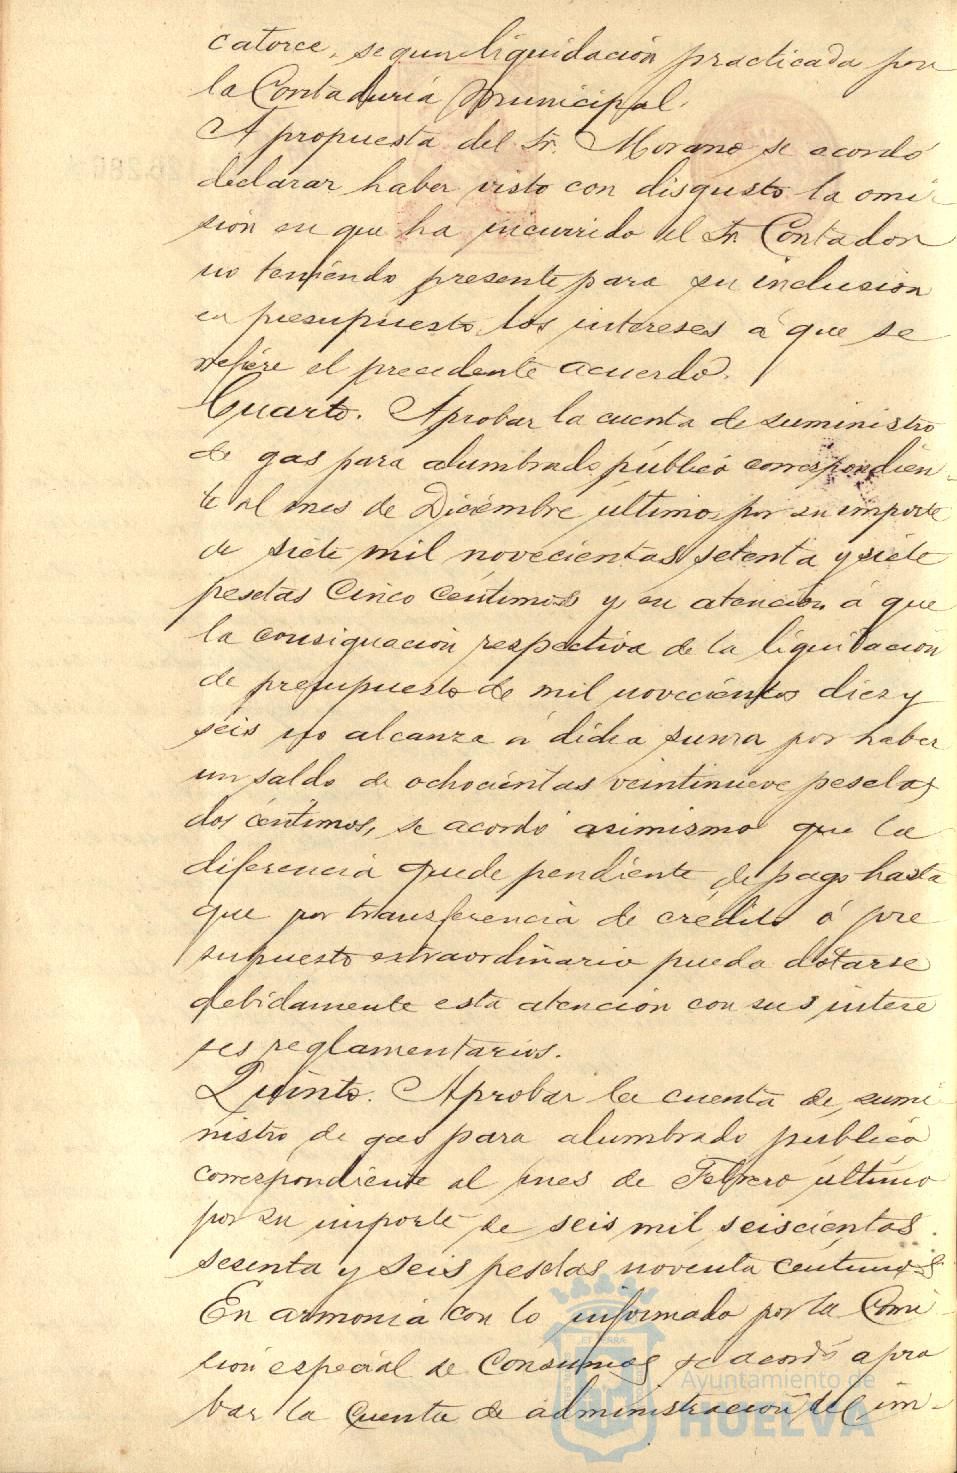 catorce, segun liquidación practicada por
la Contaduría Municipal.
A propuesta del Sr. Morano se acordó
declarar haber visto con disgusto la omi-
sión en que ha incurrido el Sr. Contador
no teniendo presente para su inclusión
en presupuesto, los intereses á que se
refiere el precedente acuerdo.
Cuarto. Aprobar la cuenta de suministro
de gas para alumbrado público correspondien-
te al mes de Diciembre último, por su importe
de siete mil novecientas setenta y siete
pesetas cinco céntimos y en atención á que
la consignación respectiva de la liquidación
de presupuesto de mil novecientos diez y
seis no alcanza á dicha suma por haber
un saldo de ochocientas veintinueve pesetas
dos céntimos, se acordó asimismo que la
diferencia quede pendiente de pago hasta
que por transferencia de crédito ó pre
supuesto extraordinario pueda dotarse
debidamente esta atención con sus intere
ses reglamentarios.
Quinto. Aprobar la cuenta de sumi
nistro de gas para alumbrado público
correspondiente al mes de Febrero último
por su importe de seis mil seiscientas
sesenta y seis pesetas noventa céntimos
En armonía con lo informado por la Comi-
sión especial de Consumos se acordó apro
bar la cuenta de administración del im-
Ayuntamiento de
HUELVA